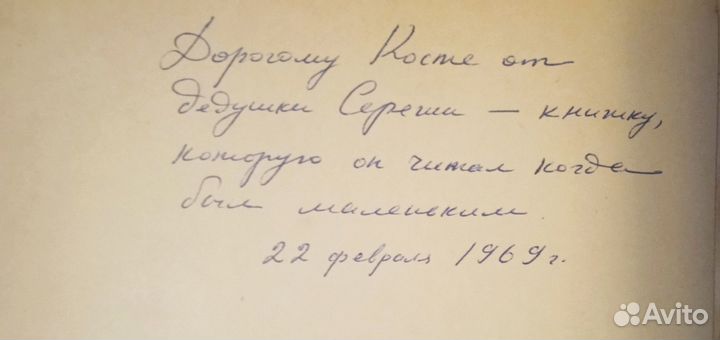 Дорогому Косте от
дедушки Сережи — книжку,
которую он читал когда
был маленьким.
22 февраля 1969 г.
Avito